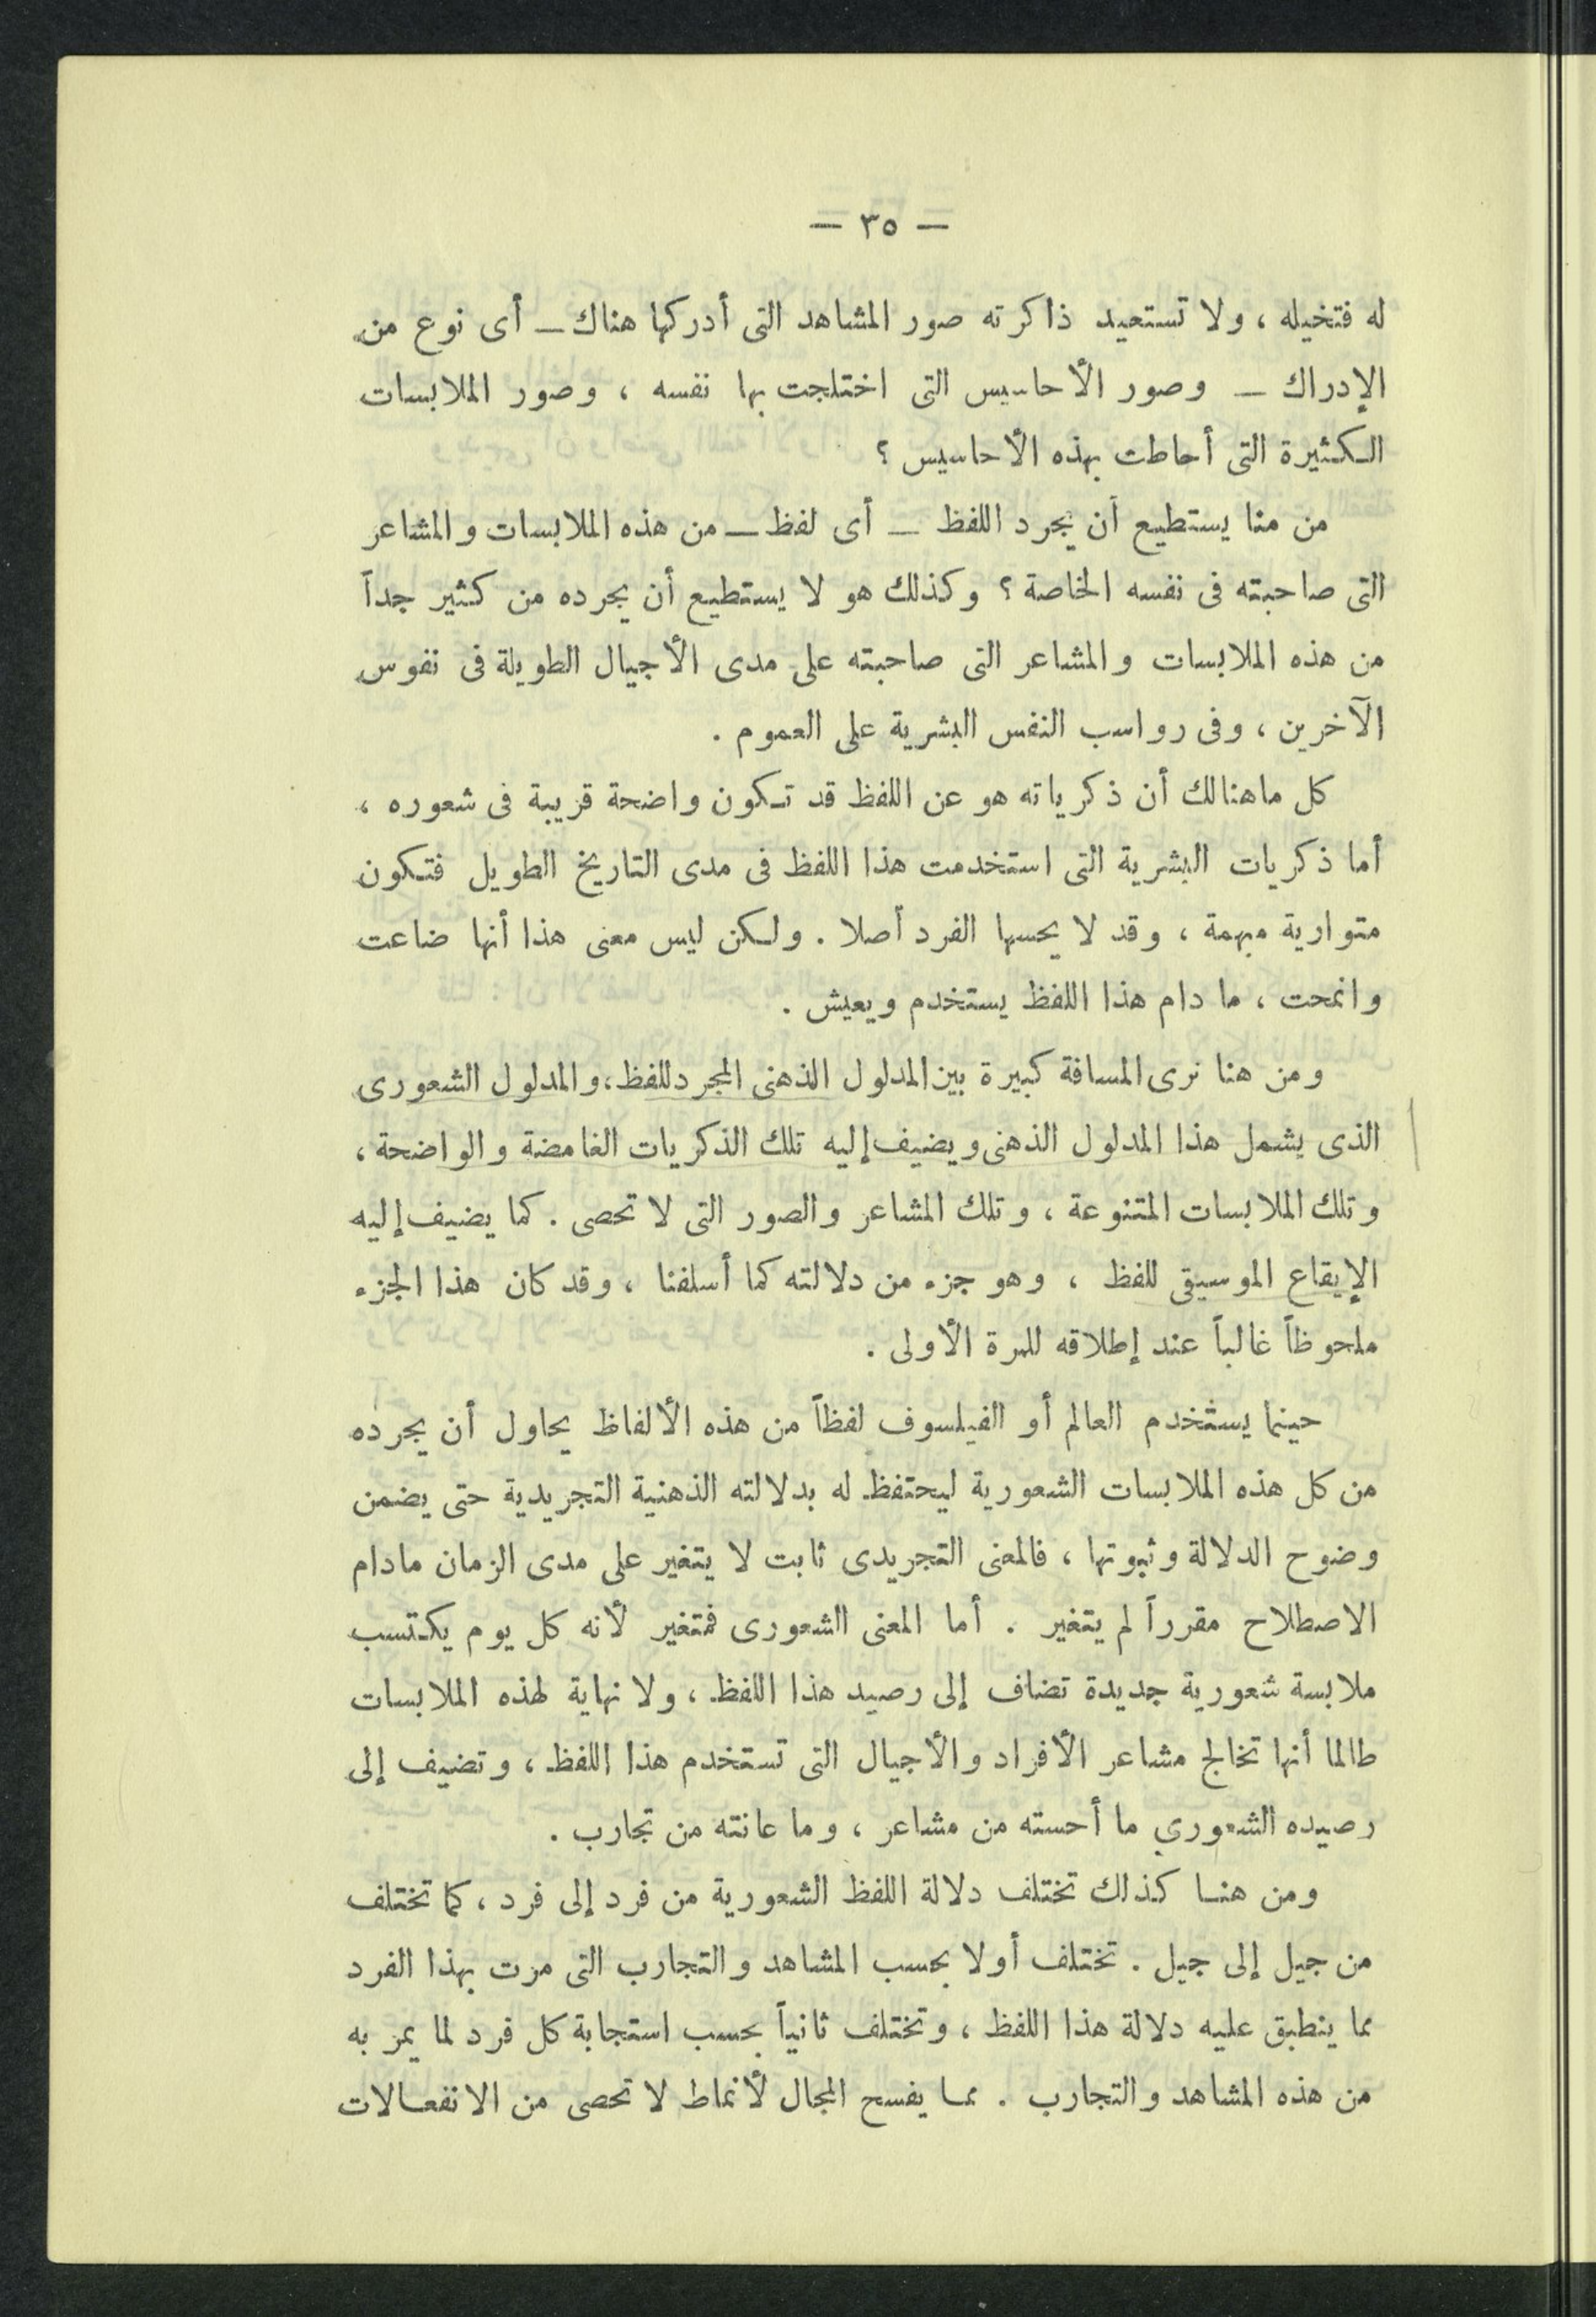 — ٣٥ —
له فتخيله ، ولا تستعيد ذاكرته صور المشاهد التى أدركها هناك – أى نوع من
الإدراك – وصور الأحاسيس التى اختلجت بها نفسه ، وصور الملابسات
الكثيرة التى أحاطت بهذه الأحاسيس ؟
من منا يستطيع أن يجرد اللفظ – أى لفظ – من هذه الملابسات والمشاعر
التى صاحبته فى نفسه الخاصة ؟ وكذلك هو لا يستطيع أن يجرده من كثير جداً
من هذه الملابسات والمشاعر التى صاحبته على مدى الأجيال الطويلة فى نفوس
الآخرين ، وفى رواسب النفس البشرية على العموم .
كل ماهنالك أن ذكرياته هو عن اللفظ قد تكون واضحة قريبة فى شعوره ،
أما ذكريات البشرية التى استخدمت هذا اللفظ فى مدى التاريخ الطويل فتكون
متوارية مبهمة ، وقد لا يحسها الفرد أصلا . ولكن ليس معنى هذا أنها ضاعت
وانمحت ، ما دام هذا اللفظ يستخدم ويعيش .
ومن هنا نرى المسافة كبيرة بين المدلول الذهنى المجرد للفظ، والمدلول الشعورى
الذى يشمل هذا المدلول الذهنى ويضيف إليه تلك الذكريات الغامضة والواضحة ،
وتلك الملابسات المتنوعة ، وتلك المشاعر والصور التى لا تحصى . كما يضيف إليه
الإيقاع الموسيقى للفظ ، وهو جزء من دلالته كما أسلفنا ، وقد كان هذا الجزء
ملحوظاً غالباً عند إطلاقه للمرة الأولى .
حينما يستخدم العالم أو الفيلسوف لفظاً من هذه الألفاظ يحاول أن يجرده
من كل هذه الملابسات الشعورية ليحتفظ له بدلالته الذهنية التجريدية حتى يضمن
وضوح الدلالة وثبوتها ، فالمعنى التجريدى ثابت لا يتغير على مدى الزمان مادام
الاصطلاح مقرراً لم يتغير . أما المعنى الشعورى فمتغير لأنه كل يوم يكتسب
ملابسة شعورية جديدة تضاف إلى رصيد هذا اللفظ ، ولا نهاية لهذه الملابسات
طالما أنها تخالج مشاعر الأفراد والأجيال التى تستخدم هذا اللفظ ، وتضيف إلى
رصيده الشعوري ما أحسته من مشاعر ، وما عانته من تجارب .
ومن هنا كذلك تختلف دلالة اللفظ الشعورية من فرد إلى فرد ، كما تختلف
من جيل إلى جيل . تختلف أولا بحسب المشاهد والتجارب التى مرت بهذا الفرد
مما ينطبق عليه دلالة هذا اللفظ ، وتختلف ثانياً بحسب استجابة كل فرد لما يمر به
من هذه المشاهد والتجارب . مما يفسح المجال لأنماط لا تحصى من الانفعالات